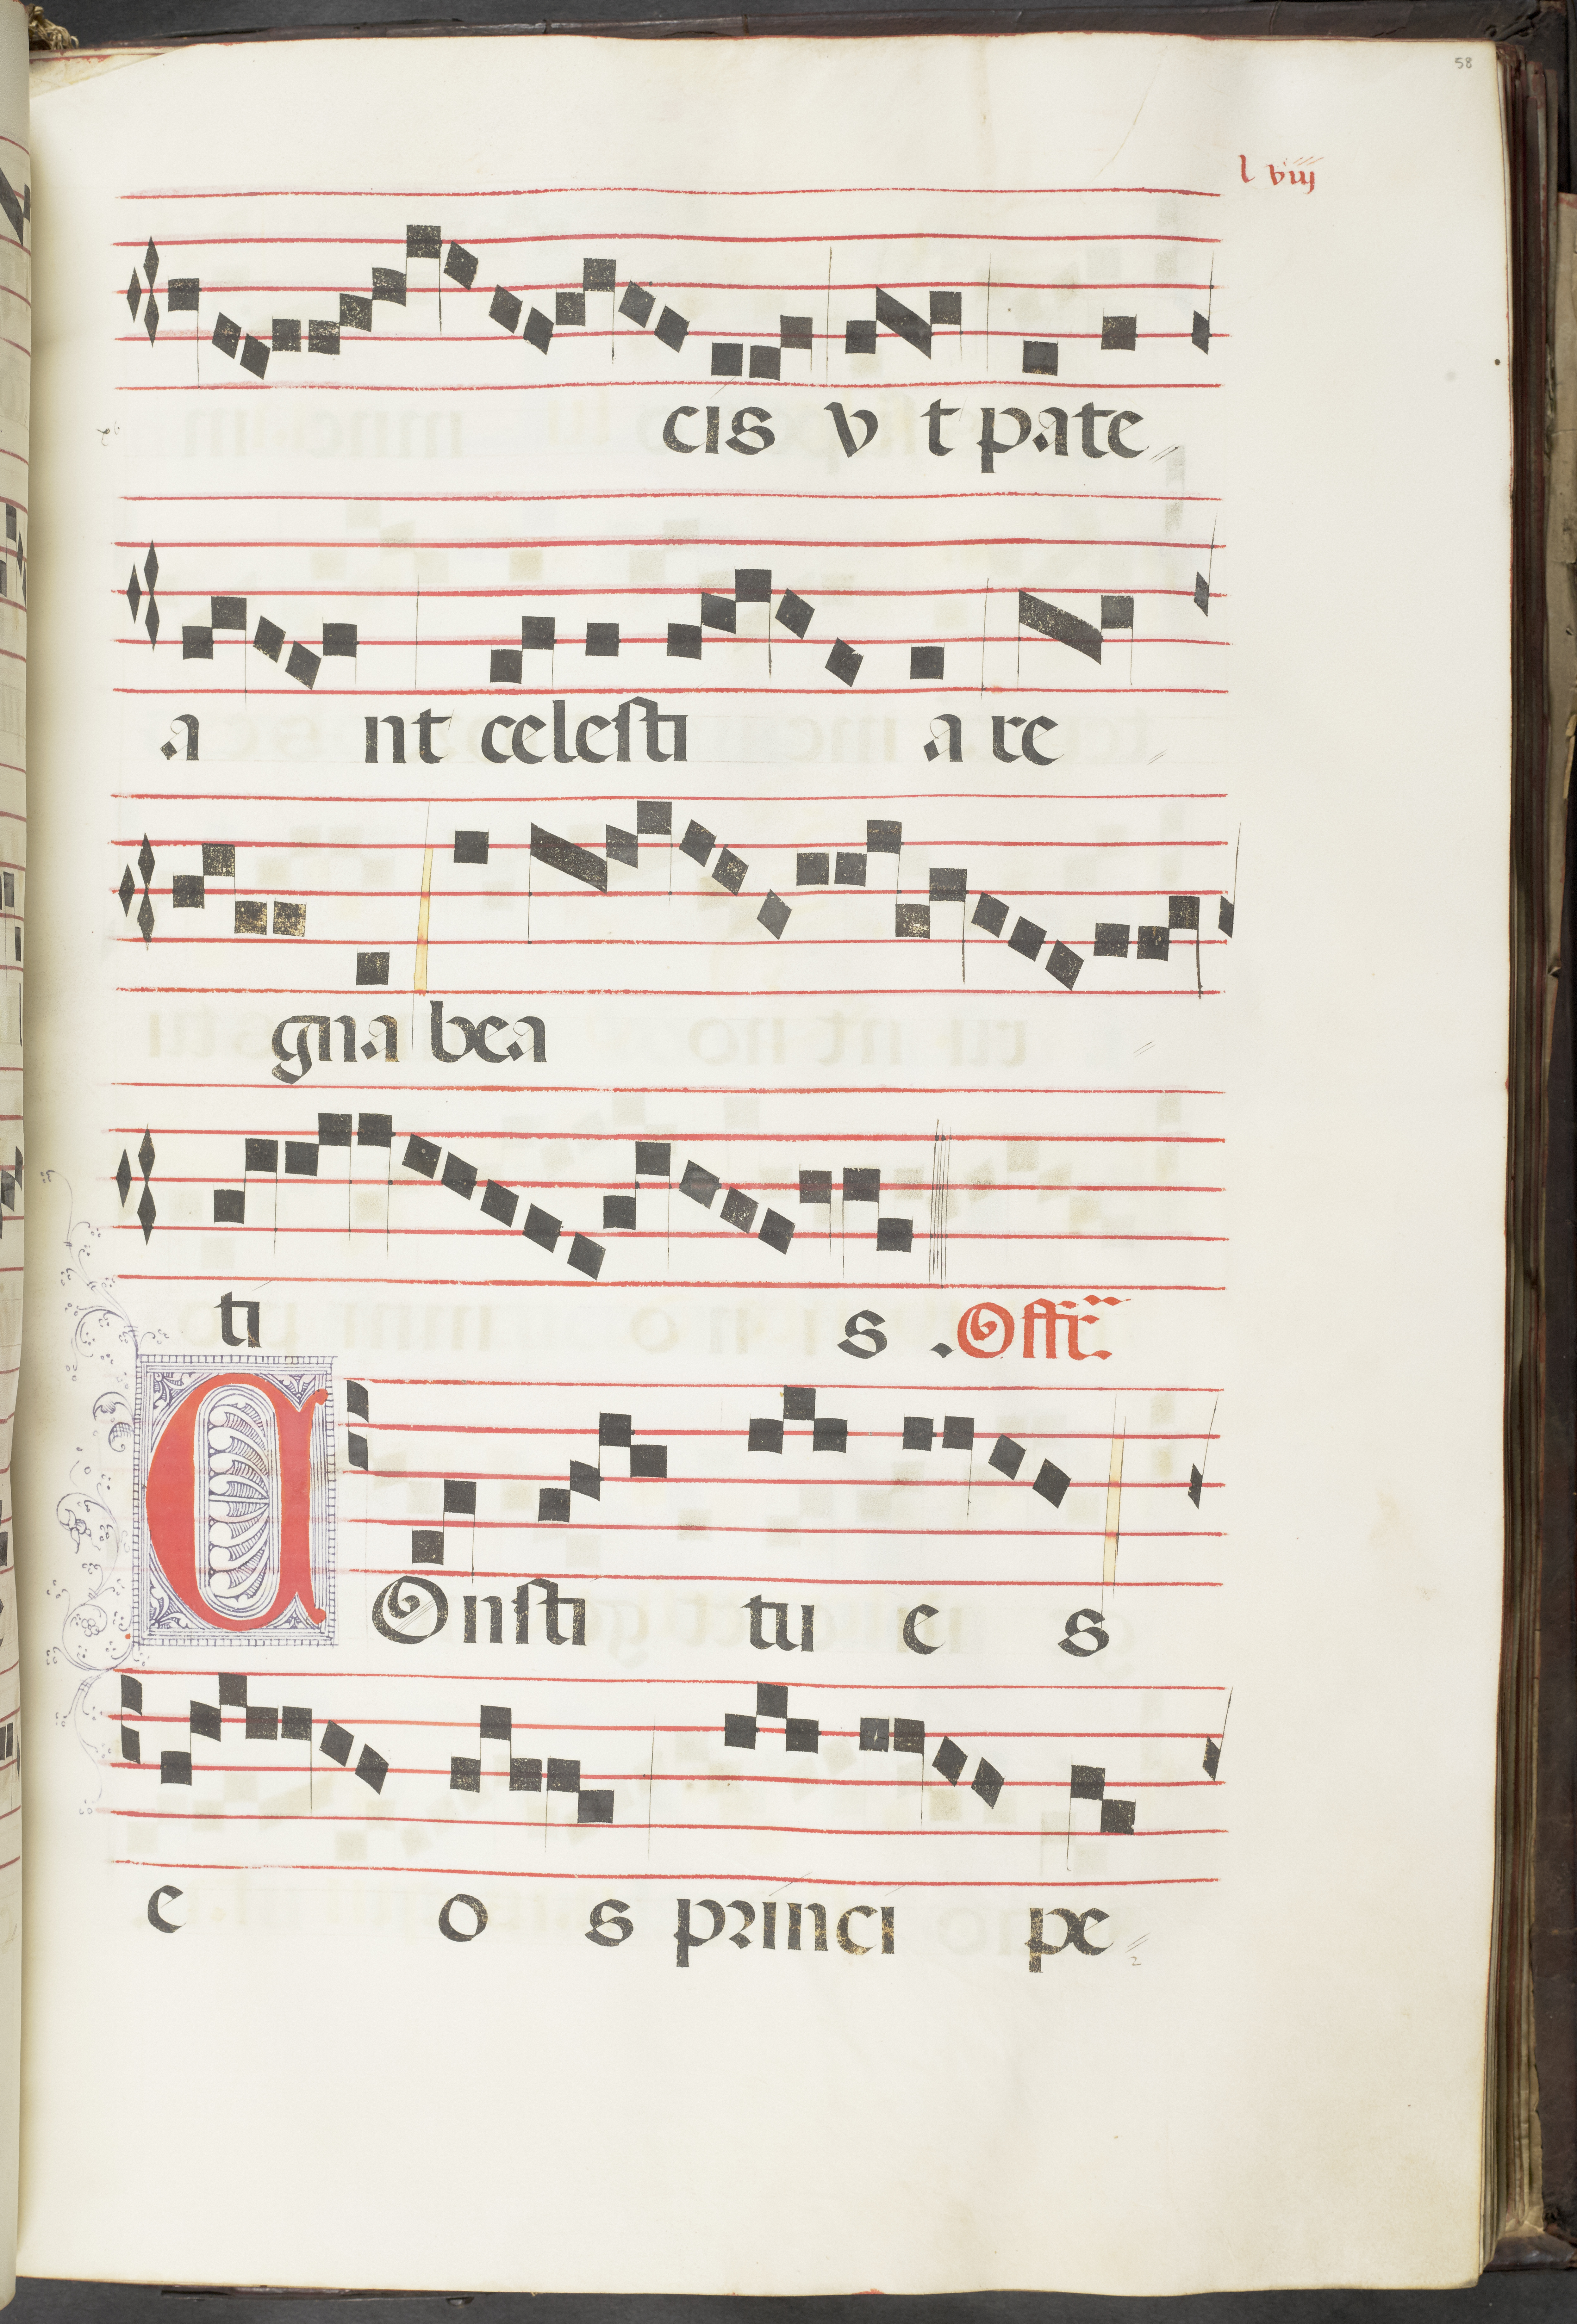 58
l viiij
cis v t pate
a nt celesti a re
gna bea
ti s .Offr̃.
COnsti tu e s
e o s princi pe